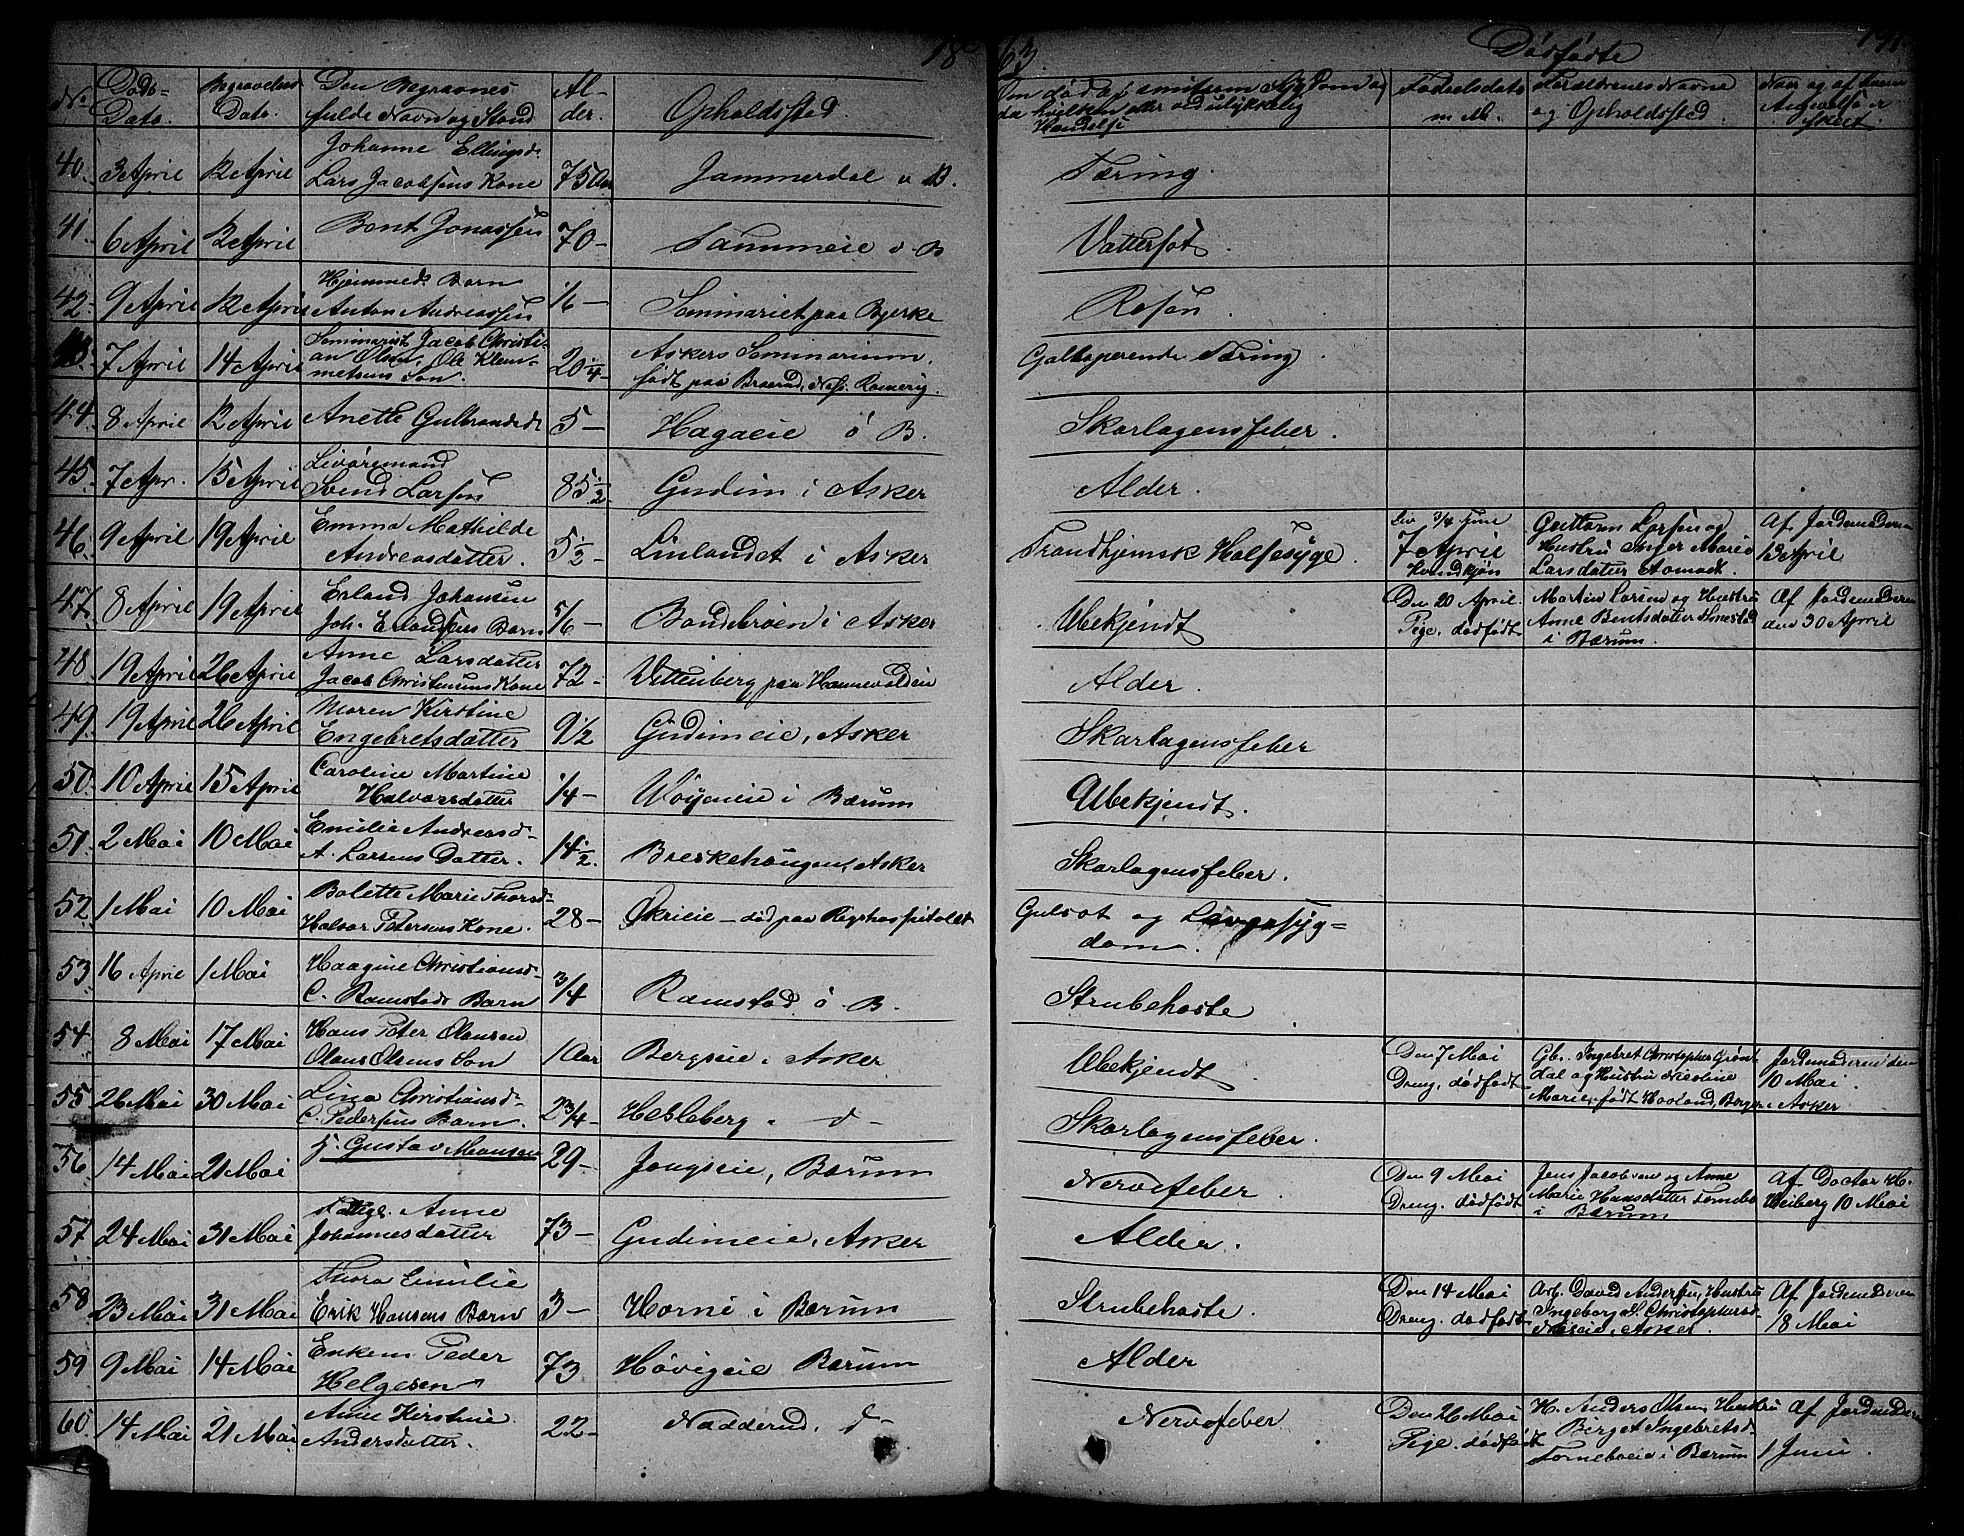 1863.
Dødfødte
No.
Døds-
Dato.
Begravelses
Dato.
Den Begravnes
fulde Navn og Stand
Al-
der.
Opholdssted.
Om død af smitsom Sygdom og
da hvilken eller ved ulykkelig
Hændelse
Fødselsdato
m. M.
Forældrenes Navne
og Opholdssted.
Naar og af hvem
Anmeldelse er
skeet.
40. 3 April 12 April Johanne Ellingsd.
Lars Jacobsens Kone 75 Aar Jammerdal v B. Tæring.
41. 6 April 12 April Bent Jonassen 70 - Tanumeie v B Vattersot.
42. 9 April 12 April Hjemmedt Barn
Anton Andreassen 1/6 - Seminariet paa Bjerke Rosen.
43. 7 April 14 April Seminarist Jacob Christi-
an Olsen, Ole Klem-
metsens Søn. 20 1/4 - Askers Seminarium.
født paa Braarud, Næs. Romerig. Galloperende Tæring.
44. 8 April 12 April Anette Gulbrandsd. 5 - Hagaeie ø B. Skarlagensfeber.
45. 7 Apr. 15 April Livøremand
Svend Larsen 85 1/2 Gudim i Asker Alder.
46. 9 April 19 April Emma Mathilde
Andreasdatter. 5 1/2 Linlandet i Asker Trondhjemsk Halsesyge.
Liv 3/4 Time
7 April
Kvindkjøn
Guttorm Larsen og
Hustru Inger Marie
Larsdatter Aamodt.
Af Jordemoderen
13 April
47. 8 April 19 April Erland Johansen
Joh. Erlandsens Barn 5/6 - Bondebraaten i Asker Ubekjendt
Den 20 April.
Pige. dødfødt
Martin Larsen og Hustru
Anne Bentsdatter
i Bærum.
Af Jordemoderen
den 30 April
48 19 April 26 April Anne Larsdatter
Jacob Christensens Kone 72 - Vittenberg paa Hannevoldeie Alder.
49. 19 April 26 April Maren Kirstine
Engebretsdatter 9 1/2 Gudimeie, Asker Skarlagensfeber
50. 10 April 15 April Caroline Martine
Halvorsdatter 1/4 - Wøyeneie i Bærum Ubekjendt.
51. 2 Mai 10 Mai Emilie Andreasd.
A. Larsens Datter. 14 1/2. Breskehaugen, Asker Skarlagensfeber.
52 1 Mai 10 Mai Bolette Marie Thorsd.
Halvor Petersens Kone. 28 - Økrieie - død paa Rigshospitalet Gulsot og Leversyg-
dom.
53 16 April 1 Mai Haagine Christiansd.
C. Ramstads Barn 3/4 Ramstad ø B. Strubehoste
54. 8 Mai 17 Mai Hans Peter Olausen
Olaus Olsens Søn 1 Aar Bergseie i Asker Ubekjendt.
Den 7 Mai
Dreng. dødfødt
Gb. Ingebret Christopher Grønt
dal og Hustru Nicoline
Marie, født Hooland, Berger i Asker
Jordemoderen den
10 Mai.
55 26 Mai 30 Mai Lina Christiansd.
C. Pedersens Barn. 2 3/4 - Hesleberg i d - Skarlagensfeber.
56 14 Mai 21 Mai F. Gustav Hansen 29 - Jongseie, Bærum Nervefeber.
Den 9 Mai
Dreng. dødfødt
Jens Jacobsen og Anne
Marie Hansdatter
i Bærum
Af Doctor H.
Heiberg 10 Mai
57 24 Mai 31 Mai Fattigl. Anne
Johannesdatter 73 - Gudimeie, Asker Alder.
58 23 Mai 31 Mai Thora Emilie
Erik Hansens Barn 3 - Horni i Bærum Strubehoste.
Den 14 Mai
Dreng. dødfødt
Arb. David Andersen, Hustru
Ingeborg M. Christophersd.
Næseie, Asker.
Af Jordemoderen
18 Mai
59 9 Mai 14 Mai Enkem. Peder
Helgesen 73 Høvigeie Bærum Alder
60. 14 Mai 21 Mai Anne Kirstine
Andersdatter. 22 - Nadderud. d - Nervefeber
Den 26 Mai
Pige. dødfødt
H. Anders Olsen, Hustru
Birget Ingebretsd.
Torneboeie i Bærum
Af Jordemoderen
1 Juni.